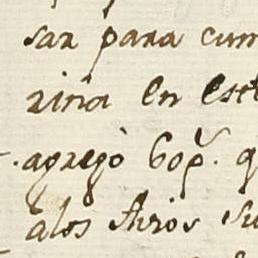 sar para cum
rina en este
agregò 60p.s q
à los Arios su